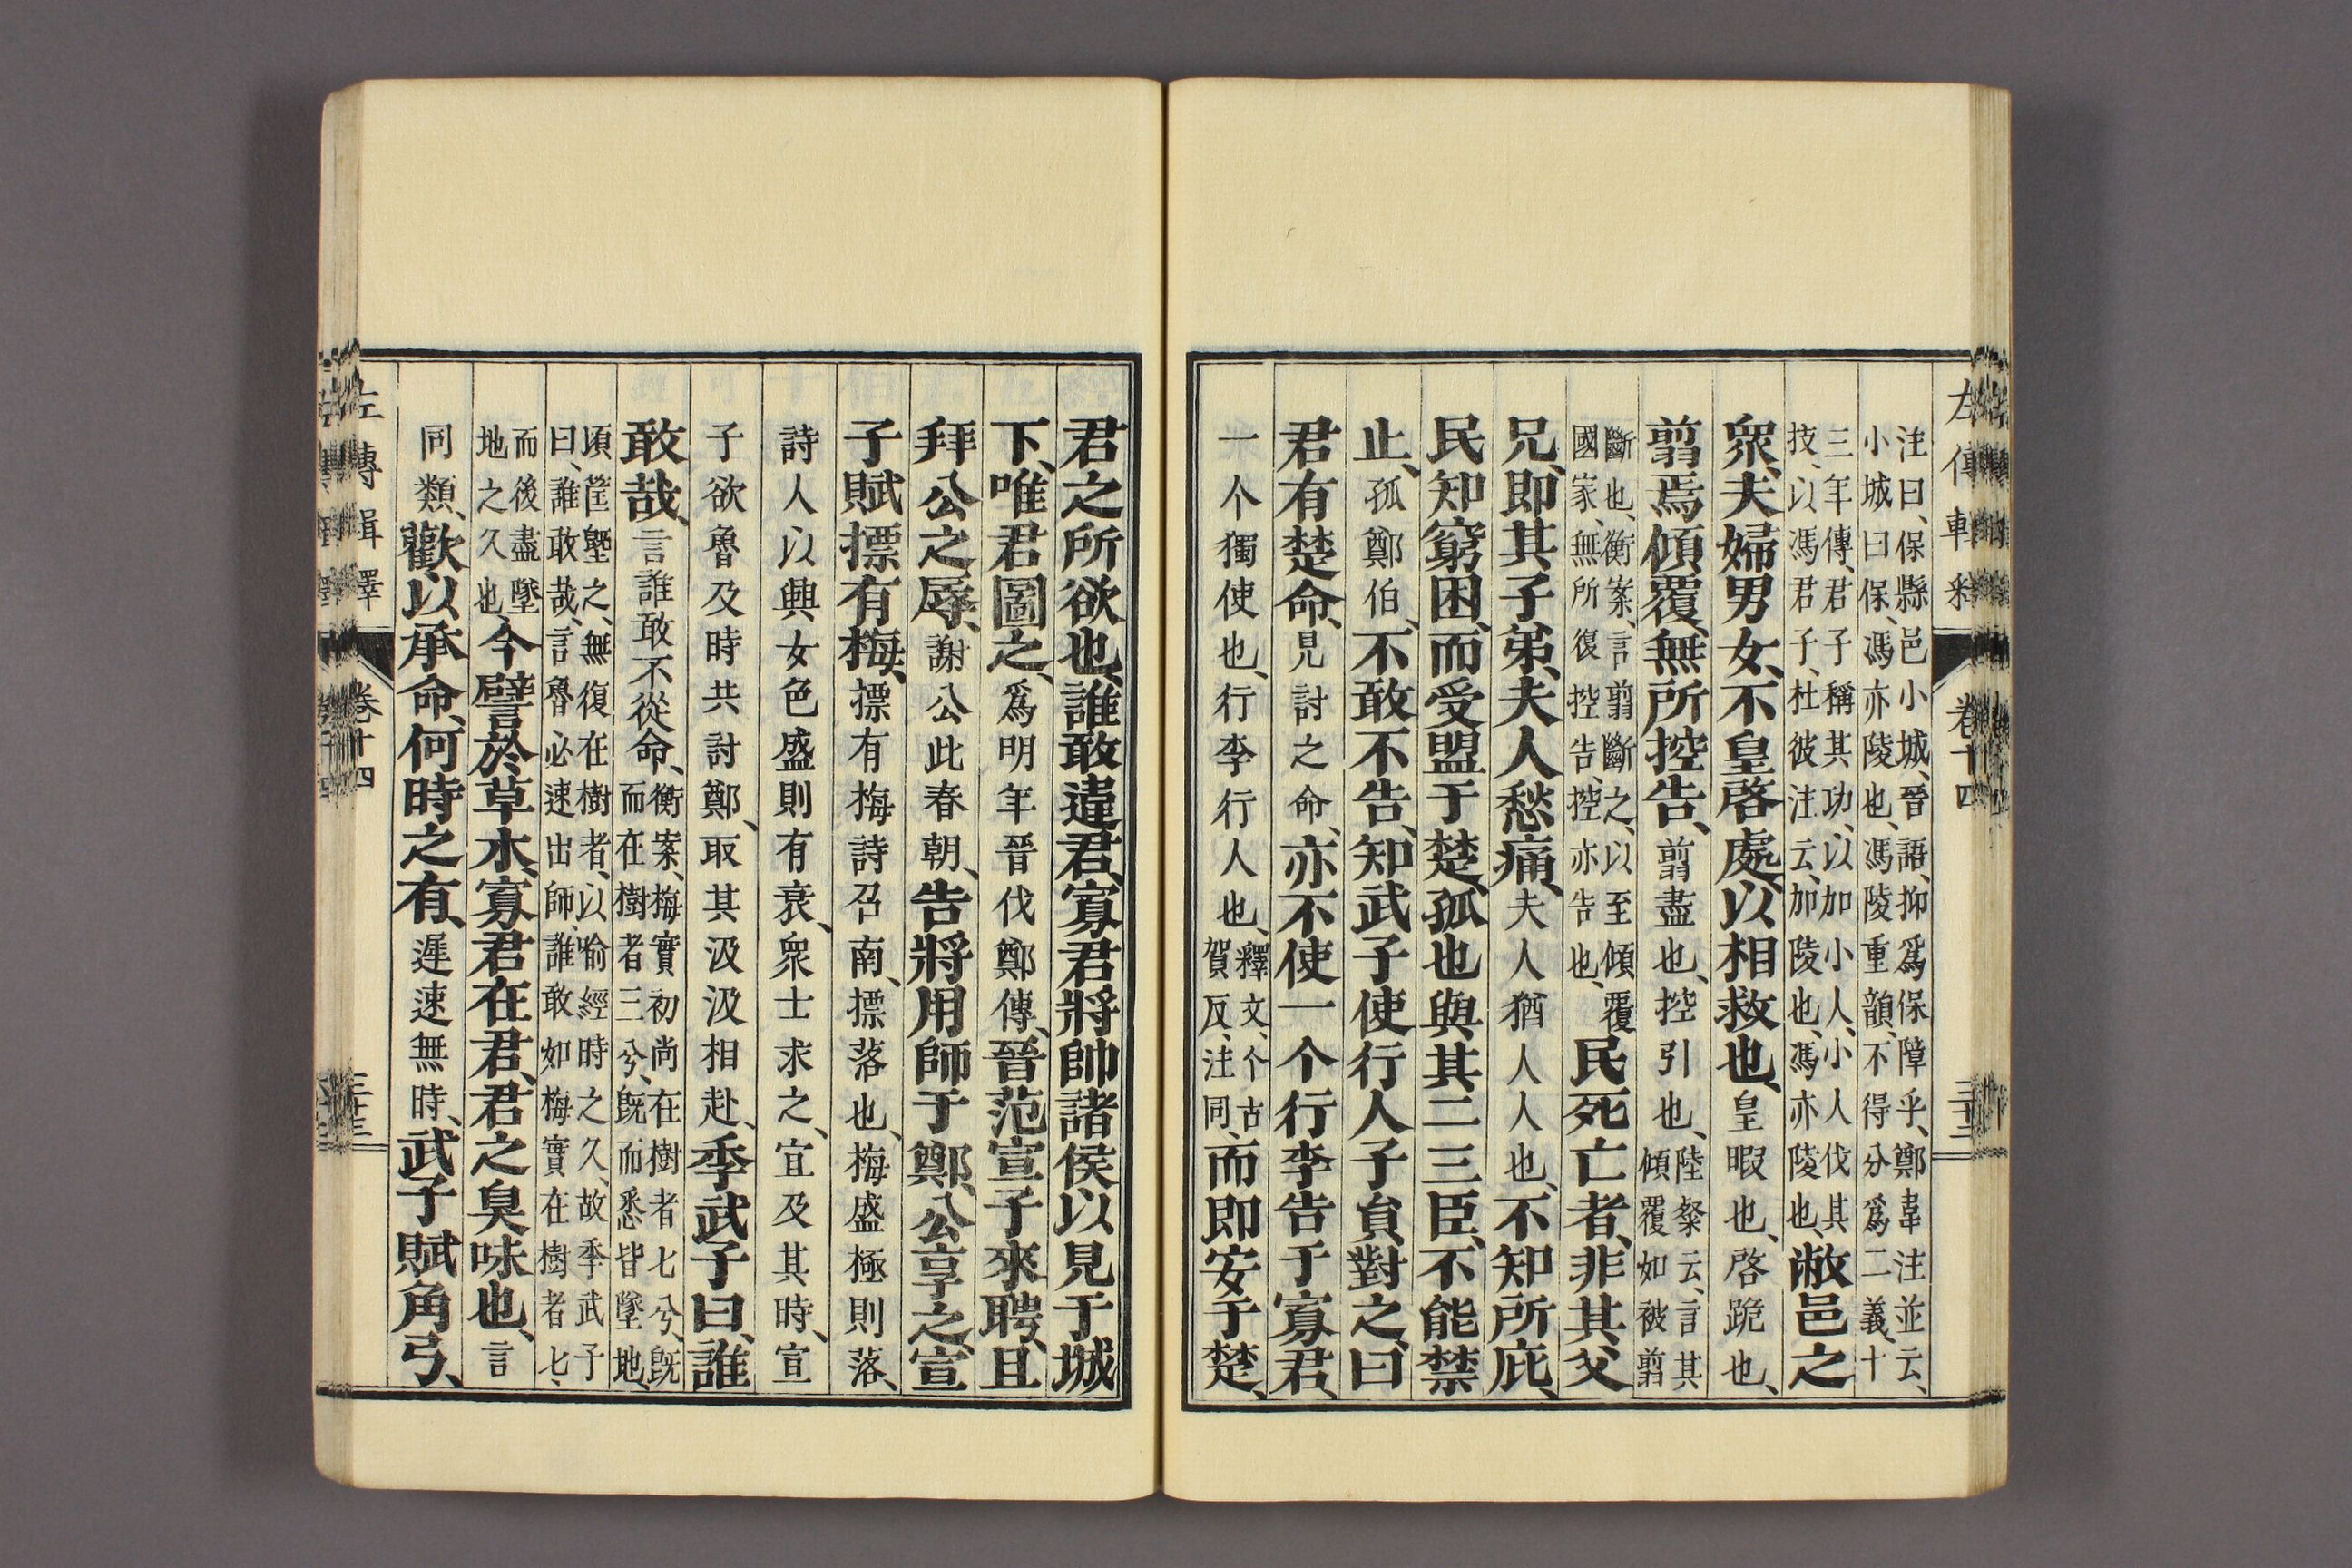 注曰、保縣邑小城、晉語、抑爲保障乎、鄭韋注並云、
小城曰保、馮亦陵也、馮陵重韻、不得分爲二義、十
三年傳、君子稱其功、以加小人、小人伐其
技、以馮君子、杜彼注云、加陵也、馮亦陵也、敝邑之
衆、夫婦男女、不皇啓處、以相救也、皇暇也、啓跪也、
翦焉傾覆、無所控告、翦盡也、控引也、陸粲云、言其
傾覆如被翦
斷也、衡案、言翦斷之、以至傾覆
國家、無所復控告、控亦告也、民死亡者、非其父
兄、即其子弟、夫人愁痛、夫人猶人人也、不知所庇、
民知窮困、而受盟于楚、孤也與其二三臣、不能禁
止、孤鄭伯、不敢不告、知武子使行人子員對之、曰
君有楚命、見討之命、亦不使一个行李告于寡君、
一个獨使也、行李行人也、釋文、个古
賀反、注同、而即安于楚、
左傳輯釋 卷十四
君之所欲也、誰敢違君、寡君將帥諸侯以見于城
下、唯君圖之、爲明年晉伐鄭傳、晉范宣子來聘、且
拜公之辱、謝公此春朝、告將用師于鄭、公享之、宣
子賦摽有梅、摽有梅詩召南、摽落也、梅盛極則落、
詩人以興女色盛則有衰、衆士求之、宜及其時、宣
子欲魯及時共討鄭、取其汲汲相赴、季武子曰、誰
敢哉、言誰敢不從命、衡案、梅實初尚在樹者七兮、旣
而在樹者三兮、旣而悉皆墜地、
頃筐塈之、無復在樹者、以喻經時之久、故季武子
曰、誰敢哉、言魯必速出師、誰敢如梅實在樹者七、
而後盡墜
地之久也、今譬於草木、寡君在君、君之臭味也、言
同類、歡以承命、何時之有、遲速無時、武子賦角弓、
左傳輯釋 卷十四 三十三